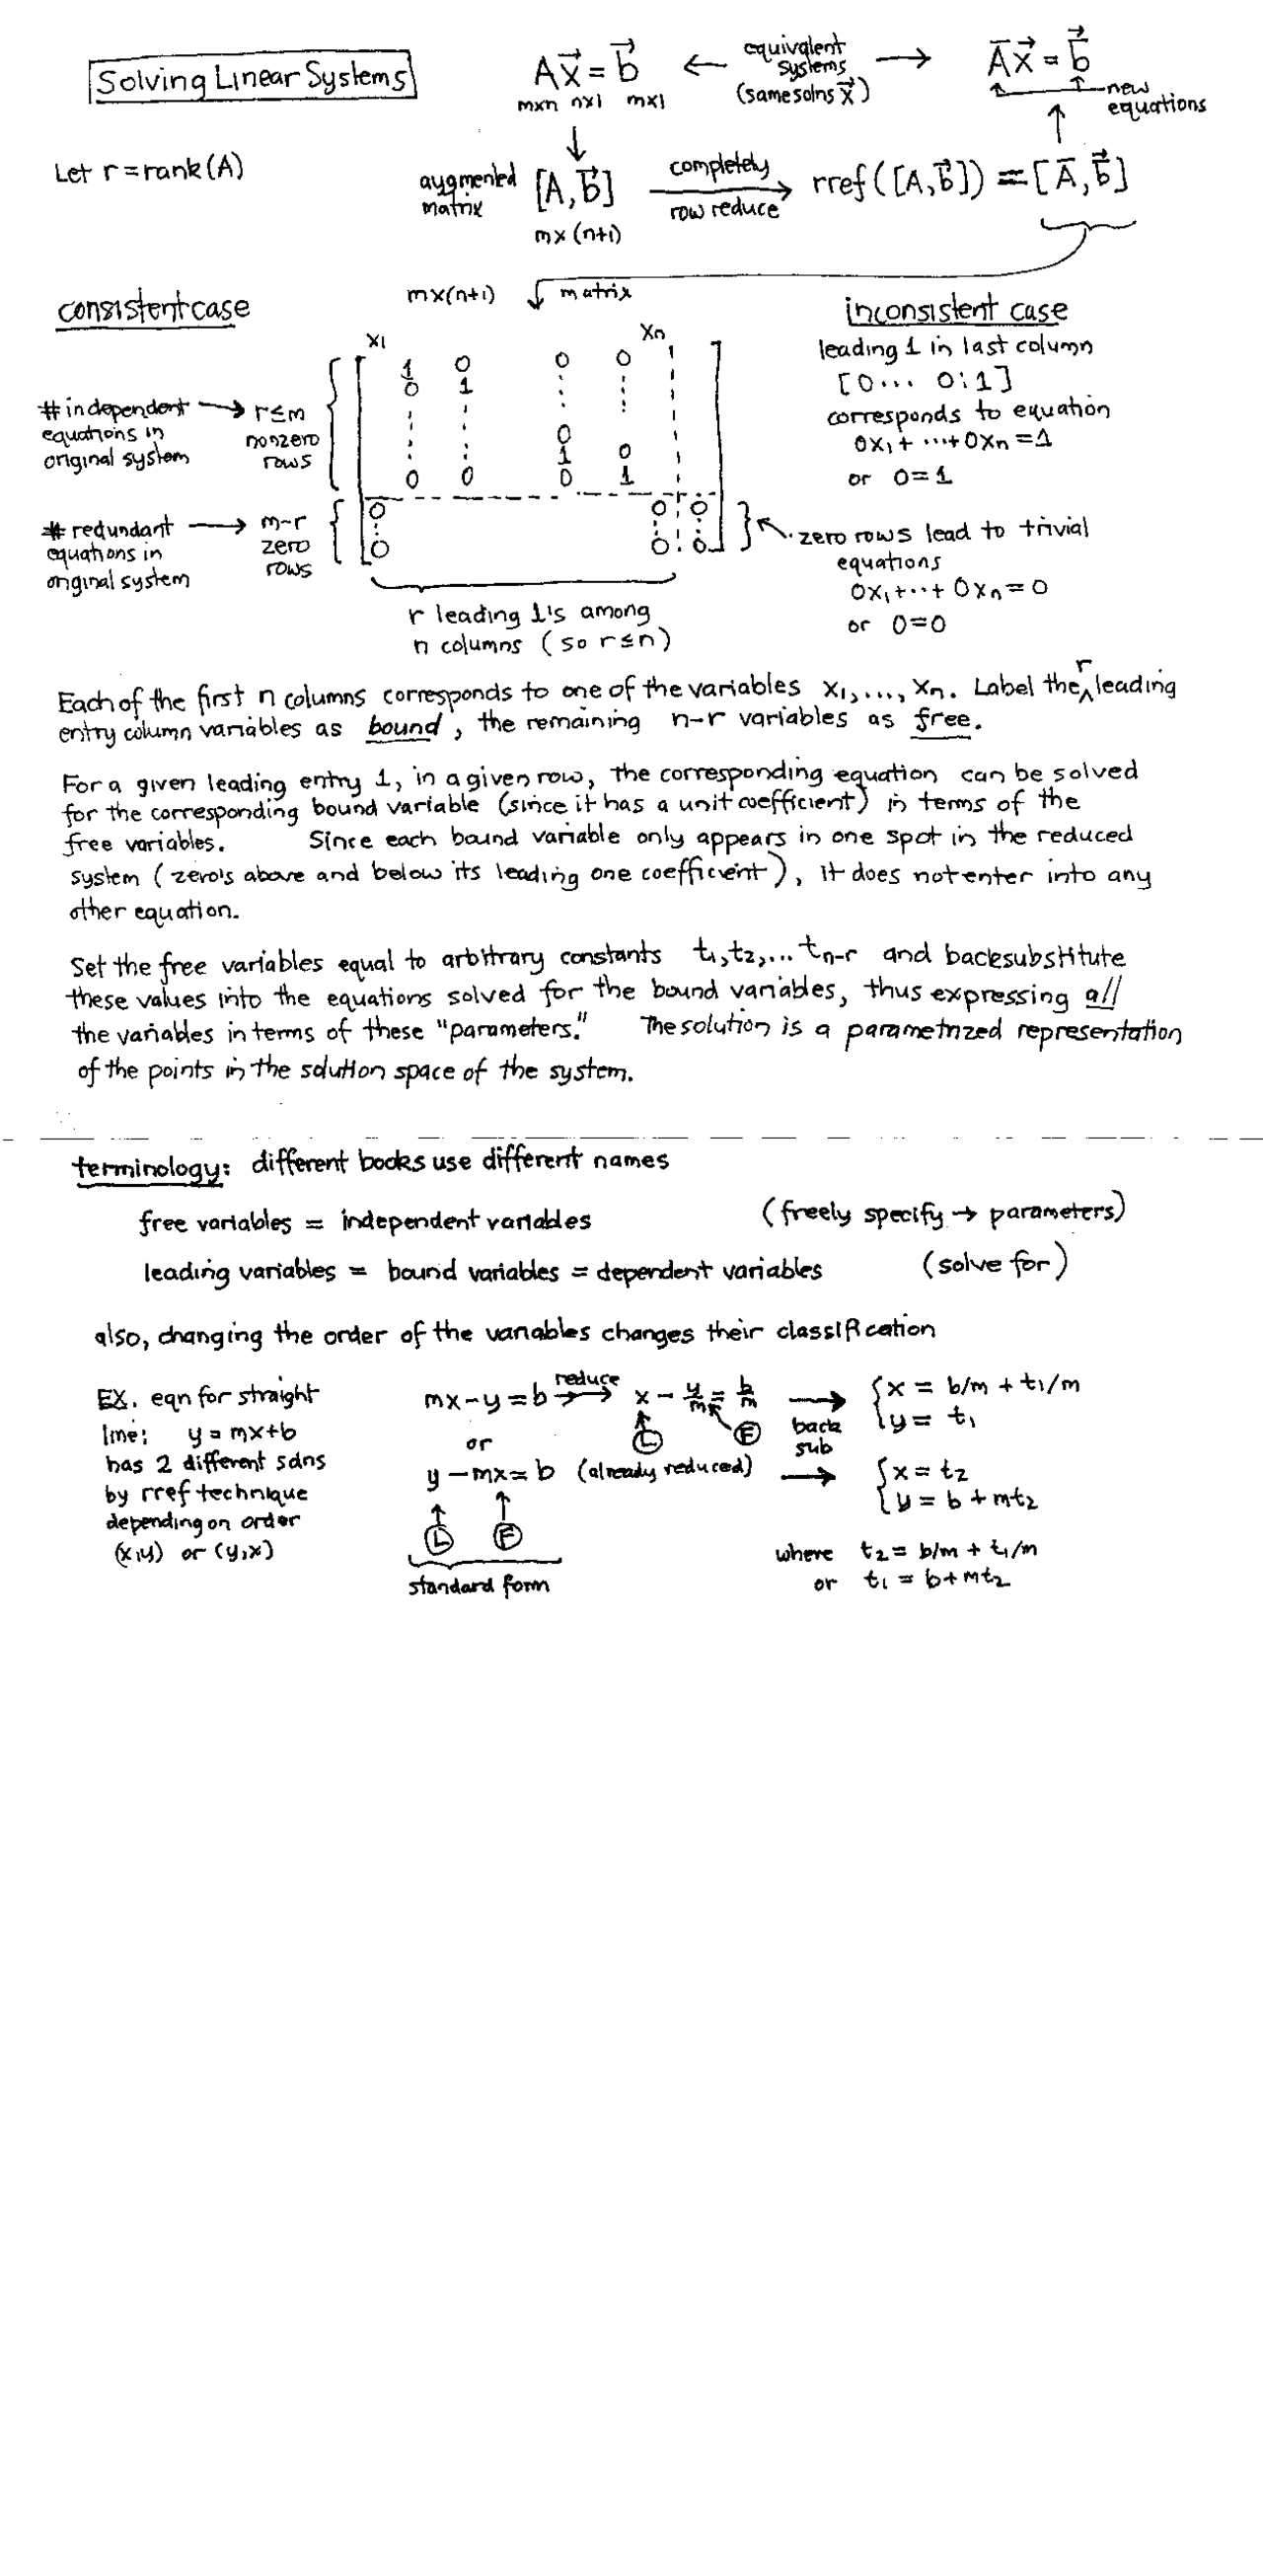 Solving Linear Systems
Ax⃗ = b⃗ ← equivalent systems (same solns x⃗) → A̅x⃗ = b̅⃗
mxn nx1 mx1
new equations
Let r = rank(A)
augmented matrix [A, b⃗] completely row reduce → rref([A, b⃗]) = [A̅, b̅⃗]
mx(n+1)
consistent case
mx(n+1) matrix
inconsistent case
leading 1 in last column
[0 ... 0 : 1]
corresponds to equation
0x₁ + ... + 0xₙ = 1
or 0 = 1
x₁ xₙ
1 0 0 0
0 1 ⋮ ⋮
⋮ ⋮ 0
⋮ ⋮ 1 0
0 0 0 1
0 0 0
⋮ ⋮ ⋮
0 0 0
# independent → r ≤ m
equations in nonzero
original system rows
# redundant → m-r
equations in zero
original system rows
zero rows lead to trivial
equations
0x₁ + ... + 0xₙ = 0
or 0 = 0
r leading 1's among
n columns (so r ≤ n)
Each of the first n columns corresponds to one of the variables x₁, ..., xₙ. Label the r leading
entry column variables as bound, the remaining n-r variables as free.
For a given leading entry 1, in a given row, the corresponding equation can be solved
for the corresponding bound variable (since it has a unit coefficient) in terms of the
free variables. Since each bound variable only appears in one spot in the reduced
system (zero's above and below its leading one coefficient), it does not enter into any
other equation.
Set the free variables equal to arbitrary constants t₁, t₂, ... tₙ₋ᵣ and backsubstitute
these values into the equations solved for the bound variables, thus expressing all
the variables in terms of these "parameters." The solution is a parametrized representation
of the points in the solution space of the system.
terminology: different books use different names
free variables = independent variables (freely specify → parameters)
leading variables = bound variables = dependent variables (solve for)
also, changing the order of the variables changes their classification
EX. eqn for straight
line: y = mx+b
has 2 different solns
by rref technique
depending on order
(x,y) or (y,x)
mx - y = b reduce → x - y/m = b/m → back sub { x = b/m + t₁/m
y = t₁
L F
or
y - mx = b (already reduced) → { x = t₂
y = b + mt₂
L F
standard form
where t₂ = b/m + t₁/m
or t₁ = b + mt₂